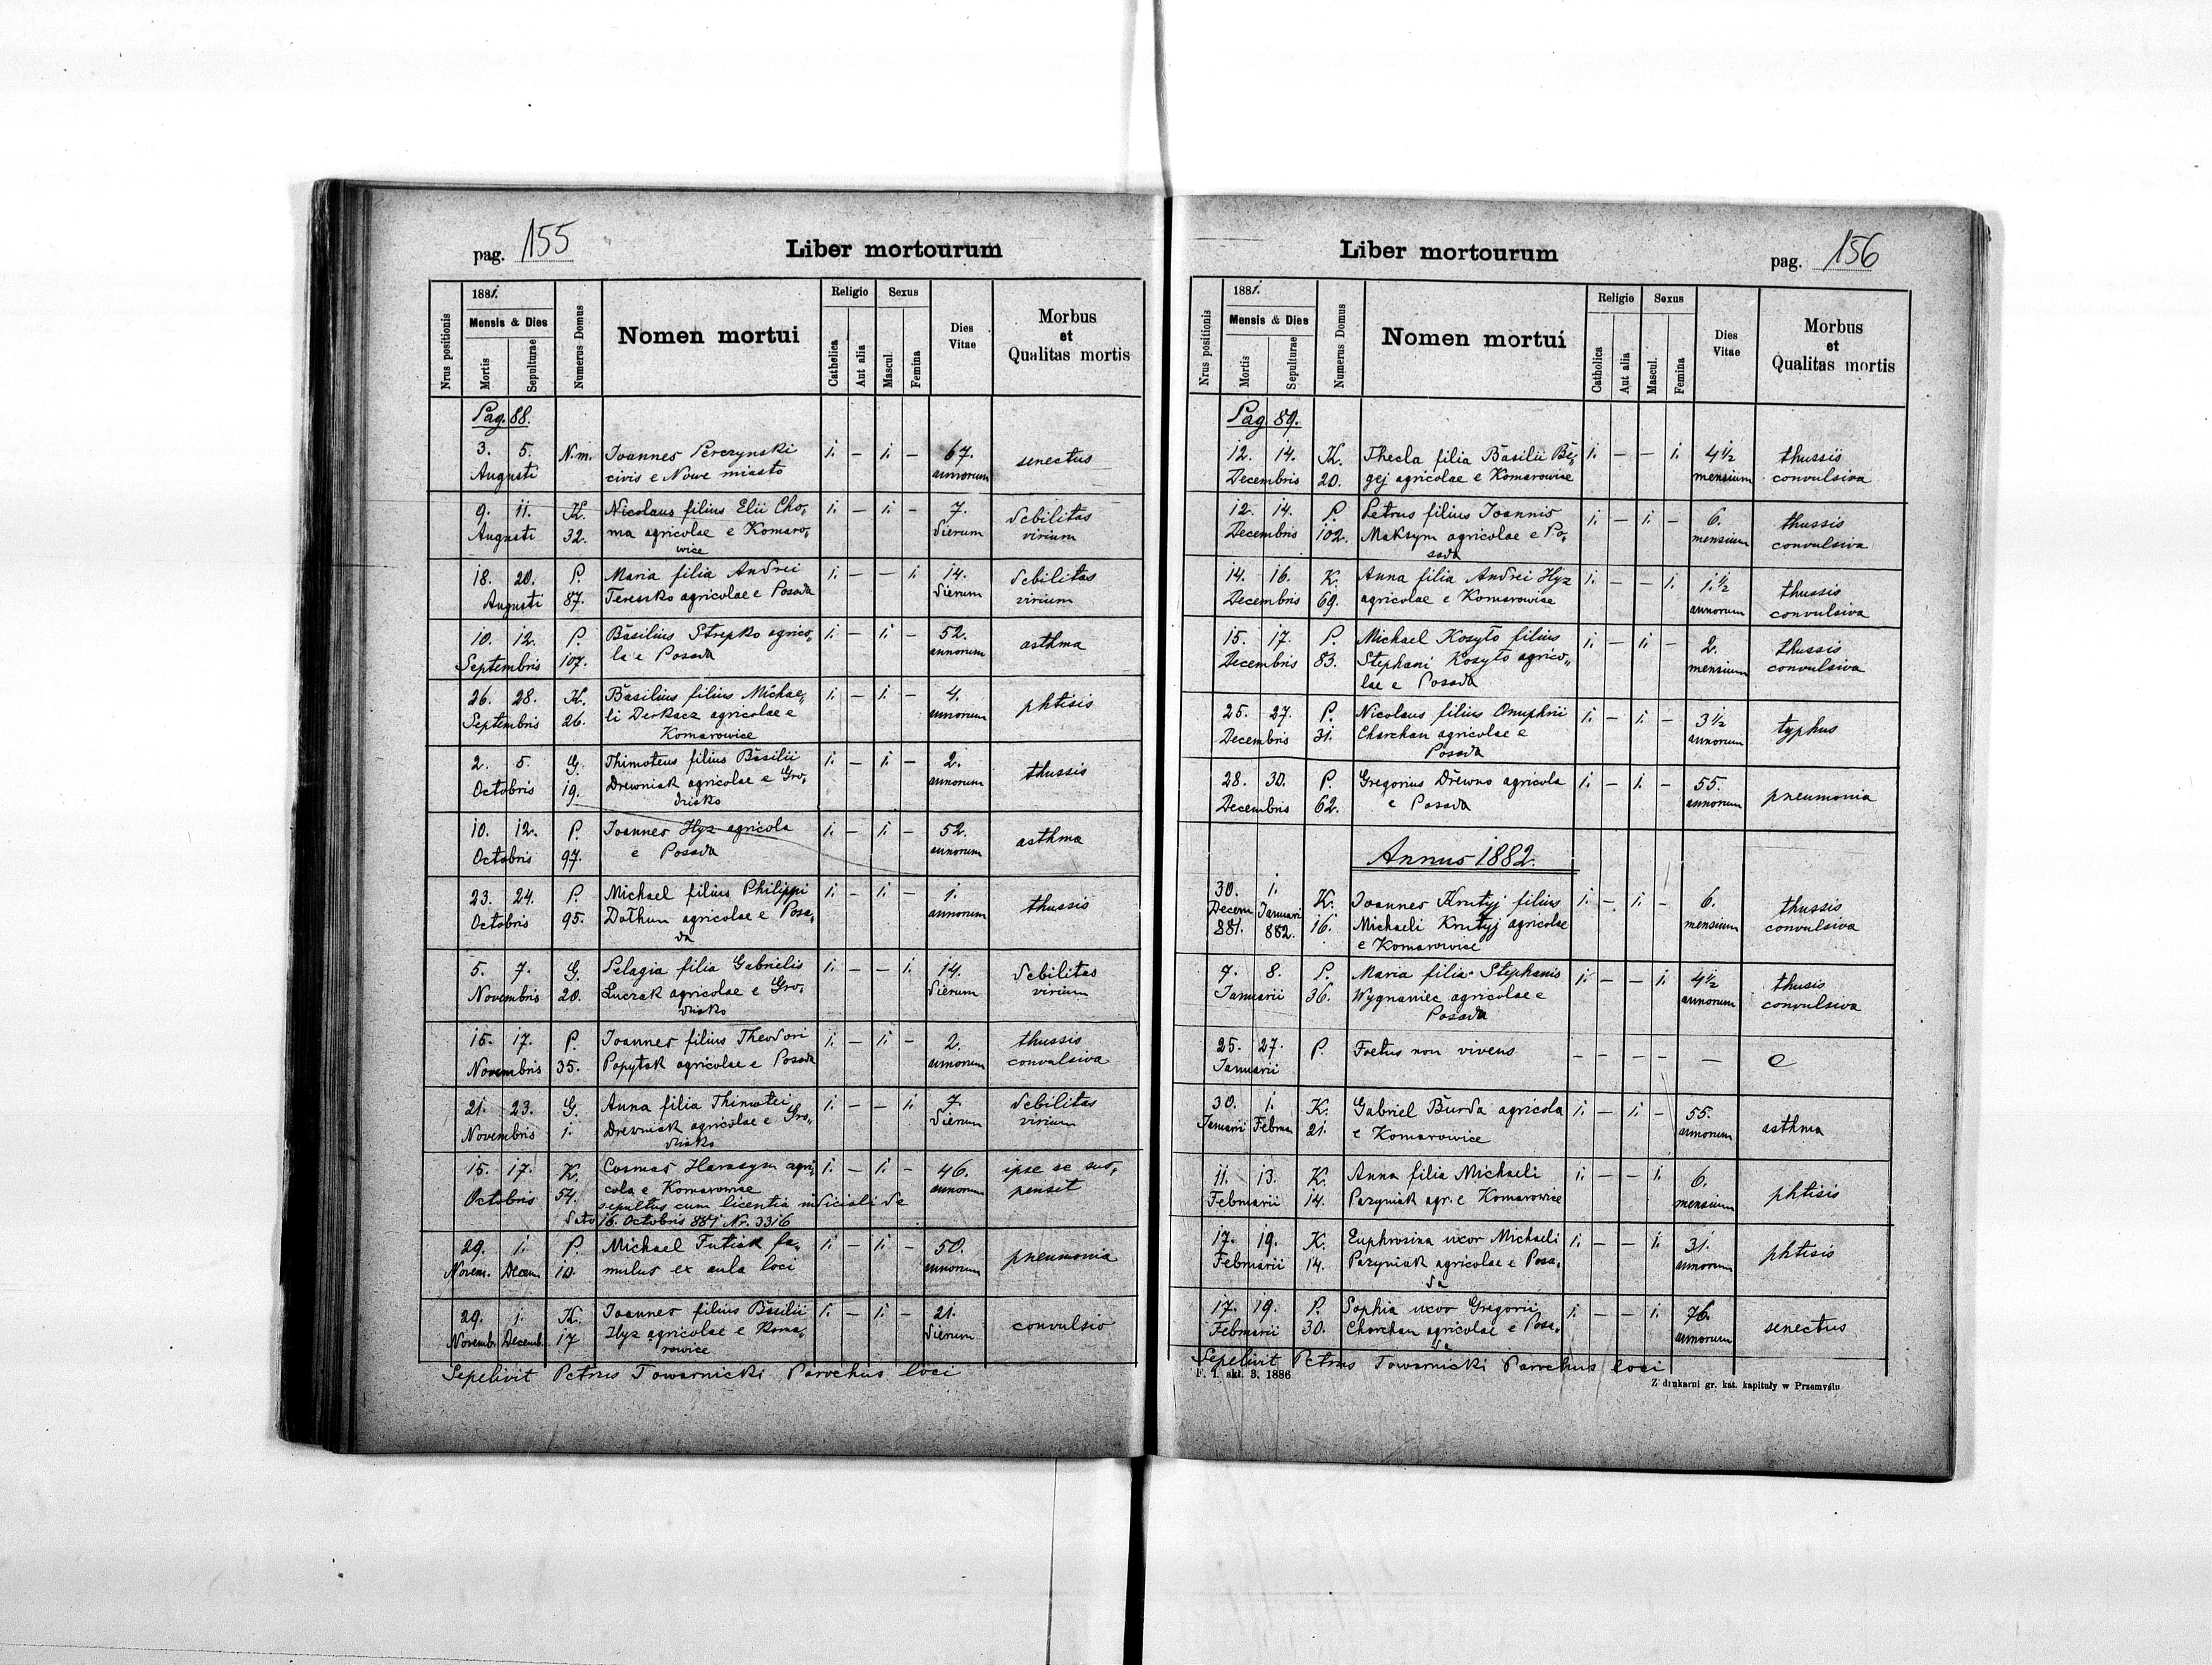 pag. 155
Liber mortourum
1881.
Religio
Sexus
Nrus positionis
Mensis & Dies
Mortis
Sepulturae
Numerus Domus
Nomen mortui
Catholica
Aut alia
Mascul.
Femina
Dies
Vitae
Morbus
et
Qualitas mortis
Pag. 88.
3. 5. N.m. Joannes Perczynski 1. – 1. – 67. senectus
Augusti civis e Nowe miasto annorum
9. 11. K. Nicolaus filius Elii Cho„ 1. – 1. – 7. debilitas
Augusti 32. ma agricolae e Komaro„ dierum virium
wice
18. 20. P. Maria filia Andrei 1. – – 1. 14. debilitas
Augusti 87. Tereszko agricolae e Posada dierum virium
10. 12. P. Basilius Strepko agrico„ 1. – 1. – 52. asthma
Septembris 107. la e Posada annorum
26. 28. K. Basilius filius Michae„ 1. – 1. – 4. phtisis
Septembris 26. li Derkacz agricolae e annorum
Komarowice
2. 5. G. Thimoteus filius Basilii 1. – 1. – 2. thussis
Octobris 19. Drewniak agricolae e Gro„ annorum
dzisko
10. 12. P. Joannes Hyz agricola 1. – 1. – 52. asthma
Octobris 97. e Posada annorum
23. 24. P. Michael filius Philippi 1. – 1. – 1. thussis
Octobris 95. agricolae e Posa„ annorum
da
5. 7. G. Pelagia filia Gabrielis 1. – – 1. 14. debilitas
Novembris 20. Luczak agricolae e Gro„ dierum virium
dzisko
15. 17. P. Joannes filius Theodori 1. – 1. – 2. thussis
Novembris 35. Popytak agricolae e Posada annorum convulsiva
21. 23. G. Anna filia Thimotei 1. – – 1. 7. debilitas
Novembris 1. Drewniak agricolae e Gro„ dierum virium
dzisko
15. 17. K. Cosmas Harasym agri„ 1. – 1. – 46. ipse se sus„
Octobris 54. cola e Komarowice annorum pensit
sepultus cum licentia iudiciali de
dato 16. Octobris 881 Nr. 3316
29. 1. P. Michael Futiak fa„ 1. – 1. – 50. pneumonia
Novem. Decem. 10. mulus ex aula loci annorum
29. 1. K. Joannes filius Basilii 1. – 1. – 21. convulsio
Novemb. Decemb. 17 Hyz agricolae e Koma„ dierum
rowice
Sepelivit Petrus Towarnicki Parochus loci
Liber mortourum
pag. 156
1881.
Religio
Sexus
Nrus positionis
Mensis & Dies
Mortis
Sepulturae
Numerus Domus
Nomen mortui
Catholica
Aut alia
Mascul.
Femina
Dies
Vitae
Morbus
et
Qualitas mortis
Pag 89.
12. 14. K. Thecla filia Basilii Be„ 1. – – 1. 4 1/2 thussis
Decembris 20. gej agricolae e Komarowice mensium convulsiva
12. 14. P. Petrus filius Joannis 1. – 1. – 6. thussis
Decembris 102. Maksym agricolae e Po„ mensium convulsiva
sada
14. 16. K. Anna filia Andrei Hyz 1. – – 1. 1 1/2 thussis
Decembris 69. agricolae e Komarowice annorum convulsiva
15. 17. P. Michael Kosyło filius 1. – 1. – 2. thussis
Decembris 83. Stephani Kosyło agrico„ mensium convulsiva
lae e Posada
25. 27. P. Nicolaus filius Onuphrii 1. – 1. – 3 1/2 typhus
Decembris 31. Charchan agricolae e annorum
Posada
28. 30. P. Gregorius Drewno agricola 1. – 1. – 55. pneumonia
Decembris 62. e Posada annorum
Annus 1882.
30. 1. K. Joannes Krutyj filius 1. – 1. – 6. thussis
Decem Januari 16. Michaeli Krutyj agricolae mensium convulsiva
881. 882. e Komarowice
7. 8. P. Maria filia Stephanis 1. – – 1. 4 1/2 thusis
Januarii 36. Wygnaniec agricolae e annorum convulsiva
Posada
25. 27. P. Foetus non vivens – – – – –
Januarii
30. 1. K. Gabriel Burda agricola 1. – 1. – 55. asthma
Januarii Februa 21. e Komarowice annorum
11. 13. K. Anna filia Michaeli 1. – – 1. 6. phtisis
Februarii 14. Pazyniak agr. e Komarowice mensium
17. 19. K. Euphrosina uxor Michaeli 1. – – 1. 31. phtisis
Februarii 14. Pazyniak agricolae e Posa„ annorum
da
17. 19. P. Sophia uxor Gregorii 1. – – 1. 76. senectus
Februarii 30. Charchan agricolae e Posa„ annorum
da
Sepelivit Petrus Towarnicki Parochus loci
F. 1. skł. 3. 1886
Z drukarni gr. kat. kapituły w Przemyślu